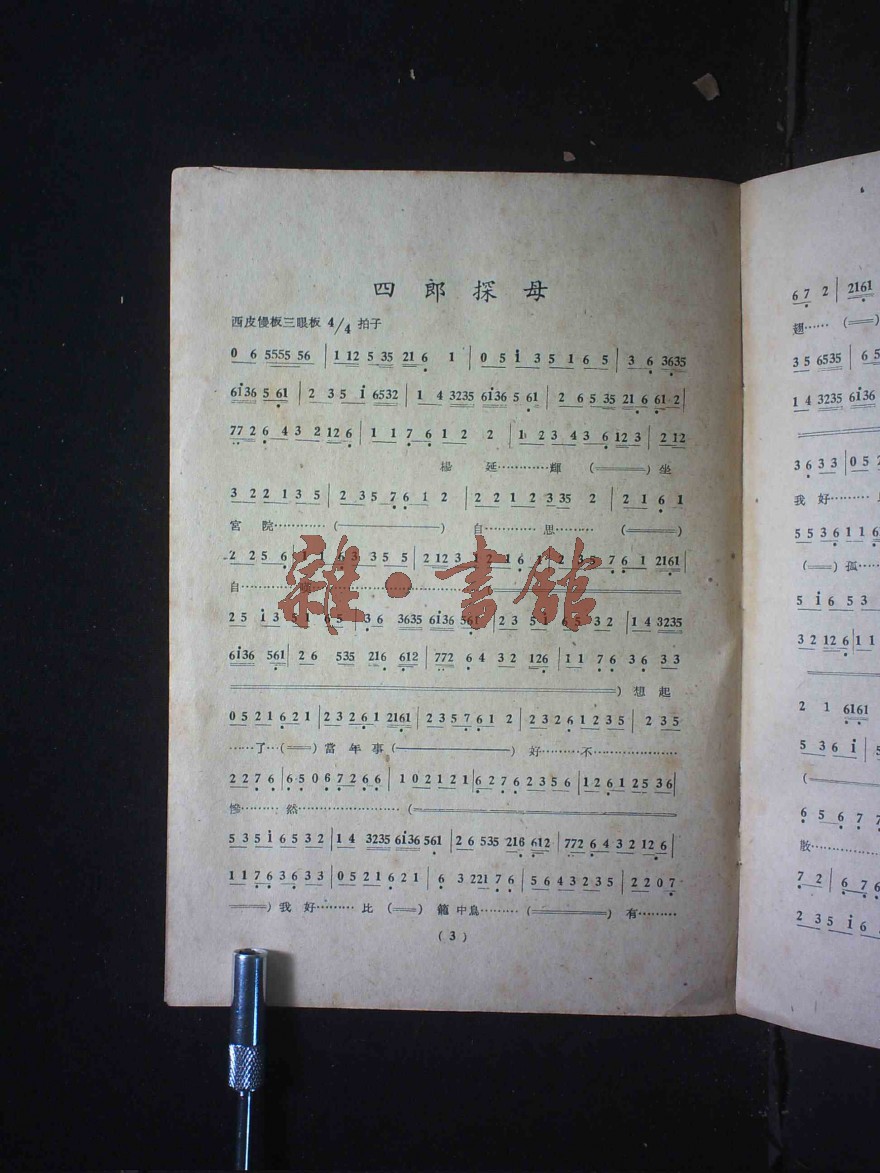 四郎探母
西皮慢板三眼板 4/4 拍子
0 6 5555 56 | 1 12 5 35 21 6 1 | 0 5 i 3 5 1 6 5 | 3 6 3635
6i36 5 61 | 2 3 5 i 6532 | 1 4 3235 6i36 5 61 | 2 6 5 35 21 6 61 2 |
77 2 6 4 3 2 12 6 | 1 1 7 6 1 2 2 | 1 2 3 4 3 6 12 3 | 2 12
楊 延…………輝 (═══) 坐
3 2 2 1 3 5 | 2 3 5 7 6 1 2 | 2 2 1 2 3 35 2 | 2 1 6 1
宮 院………… (────────) 自……… 思……… (═══)
2 2 5 6 1 1 6 3 3 5 5 | 2 12 3 1 2 1 6 1 2 3 5 7 6 1 2161 |
自………
2 5 i 3 5 1 6 5 | 3 6 3635 6i36 561 | 2 3 5 i 6 5 3 2 | 1 4 3235
6i36 561 | 2 6 535 216 612 | 772 6 4 3 2 126 | 1 1 7 6 3 6 3 3
) 想 起
0 5 2 1 6 2 1 | 2 3 2 6 1 2161 | 2 3 5 7 6 1 2 | 2 3 2 6 1 2 3 5 | 2 3 5
……了… (══) 當 年 事 (────────) 好………不………………
2 2 7 6 | 6 5 0 6 7 2 6 6 | 1 0 2 1 2 1 | 6 2 7 6 2 3 5 6 | 1 2 6 1 2 5 3 6 |
慘……… 然………………… (═══════════
5 3 5 i 6 5 3 2 | 1 4 3235 6i36 561 | 2 6 535 216 612 | 772 6 4 3 2 12 6 |
1 1 7 6 3 6 3 3 | 0 5 2 1 6 2 1 | 6 3 221 7 6 | 5 6 4 3 2 3 5 | 2 2 0 7
═══) 我 好……… 比 (══) 籠 中鳥……… (═════) 有………
( 3 )
雜·書舘
6 7 2 | 2161
翅…… (═══)
3 5 6535 | 6 5
1 4 3235 6i36
3 6 3 3 | 0 5 2
我 好………
5 5 3 6 1 1 6
(══) 孤………
5 i 6 5 3
3 2 12 6 | 1 1
2 1 6161
5 3 6 i |
(
6 5 6 7 7
散………
7 2 | 6 7 6
2 3 5 i 6